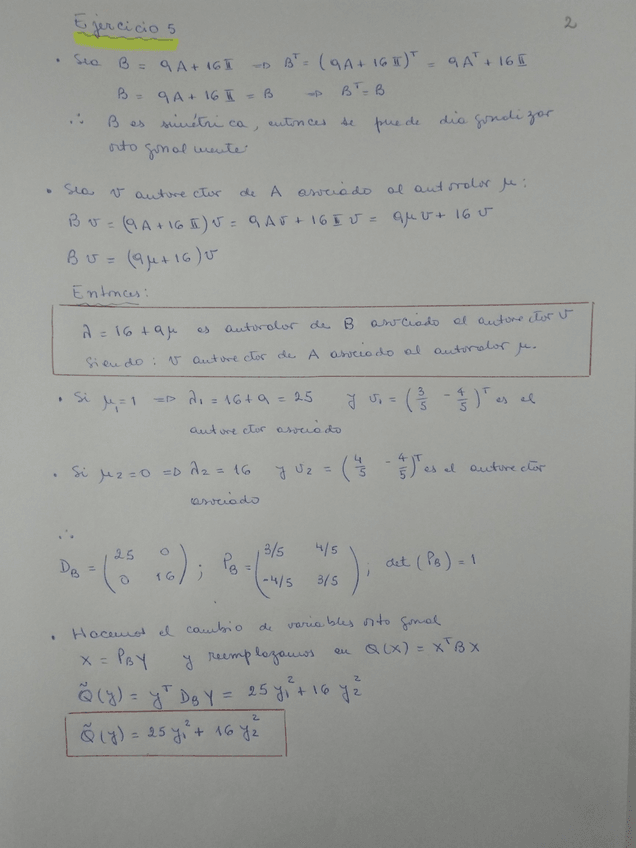 Ejercicio 5
2
• Sea B = 9A + 16 𝕀 ⇒ Bᵀ = (9A + 16 𝕀)ᵀ = 9Aᵀ + 16 𝕀
B = 9A + 16 𝕀 = B ⇒ Bᵀ = B
∴ B es simétrica, entonces se puede diagonalizar
ortogonalmente.
• Sea v autovector de A asociado al autovalor μ:
B v = (9A + 16 𝕀) v = 9A v + 16 𝕀 v = 9μ v + 16 v
B v = (9μ + 16) v
Entonces:
λ = 16 + 9μ es autovalor de B asociado al autovector v
Siendo: v autovector de A asociado al autovalor μ.
• Si μ₁ = 1 ⇒ λ₁ = 16 + 9 = 25 y v₁ = (3/5 -4/5)ᵀ es el
autovector asociado
• Si μ₂ = 0 ⇒ λ₂ = 16 y v₂ = (4/5 -4/5)ᵀ es el autovector
asociado
∴
D_B = (25 0; 0 16) ; P_B = (3/5 4/5; -4/5 3/5) ; det (P_B) = 1
• Hacemos el cambio de variables ortogonal
X = P_B Y y reemplazamos en Q(X) = Xᵀ B X
Q̃(y) = yᵀ D_B Y = 25 y₁² + 16 y₂²
Q̃(y) = 25 y₁² + 16 y₂²